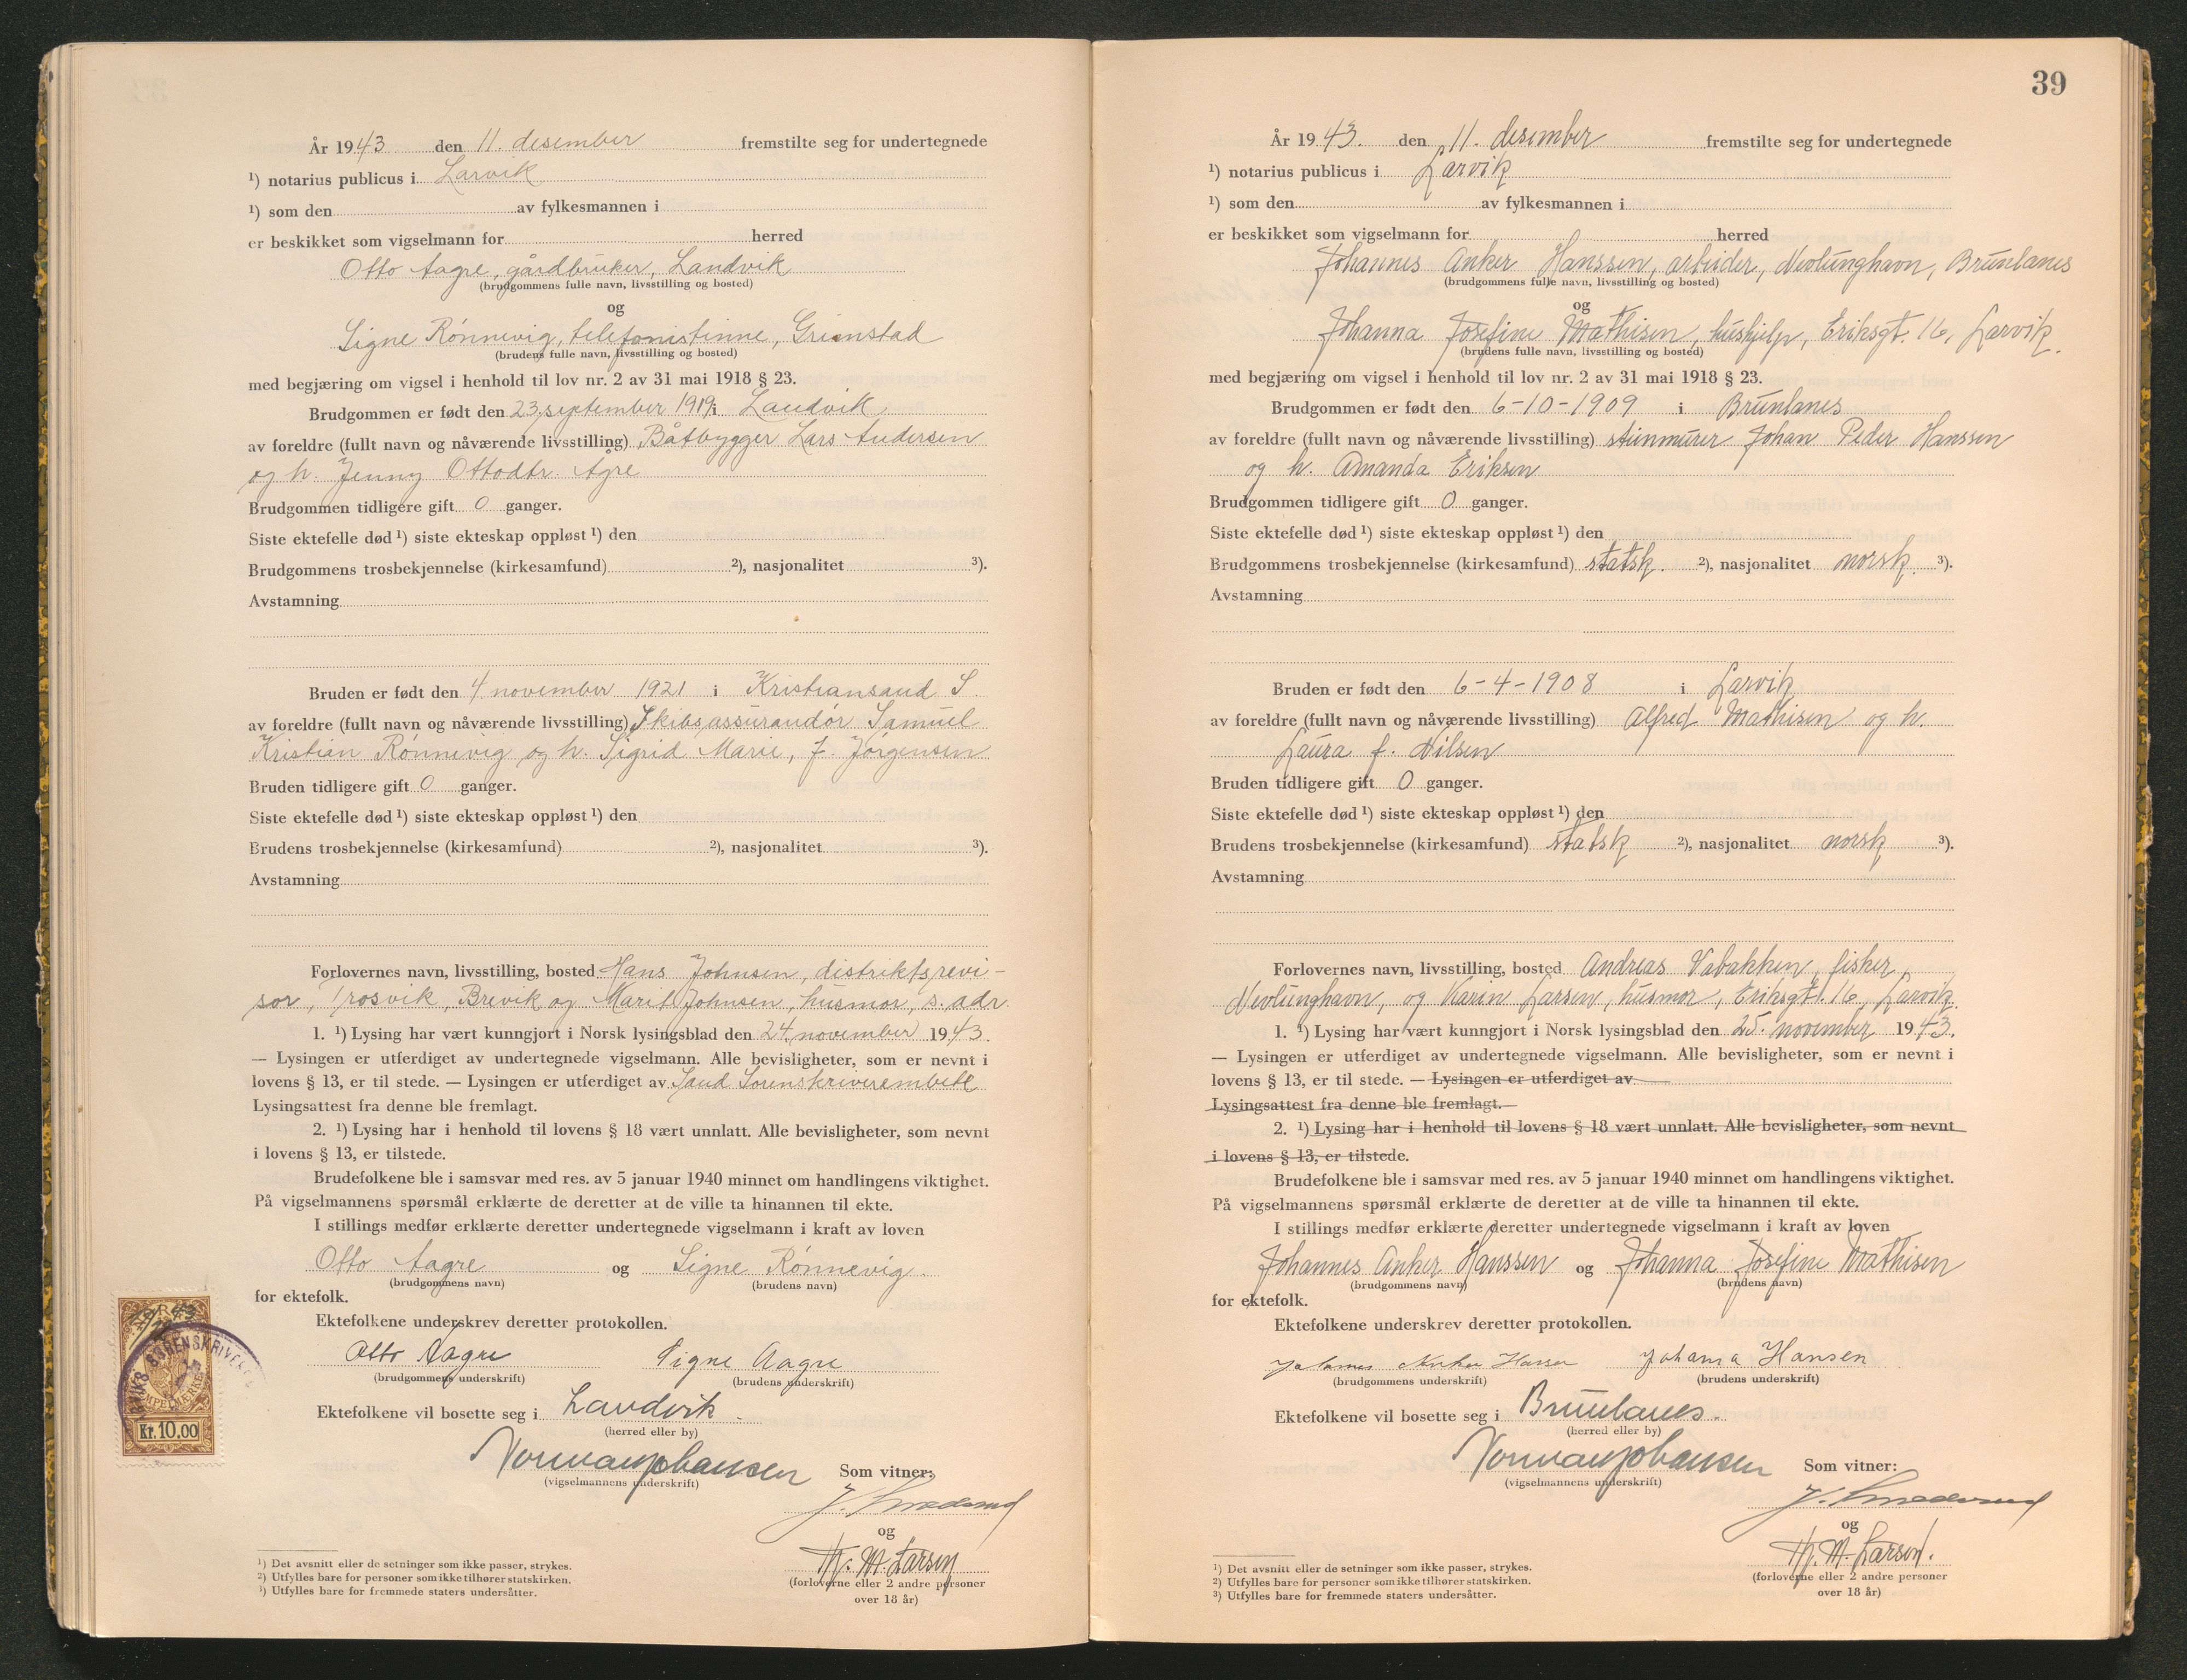 År 1943 den 11. desember fremstilte seg for undertegnede
¹) notarius publicus i Larvik
¹) som den av fylkesmannen i
er beskikket som vigselmann for herred
Otto Aagre, gårdbruker, Landvik
(brudgommens fulle navn, livsstilling og bosted)
og
Signe Rønnevig, telefonistinne, Grimstad
(brudens fulle navn, livsstilling og bosted)
med begjæring om vigsel i henhold til lov nr. 2 av 31 mai 1918 § 23.
Brudgommen er født den 23. september 1919 i Landvik
av foreldre (fullt navn og nåværende livsstilling) Båtbygger Lars Andersen
og h. Jenny Ottodtr. Agre
Brudgommen tidligere gift 0 ganger.
Siste ektefelle død ¹) siste ekteskap oppløst ¹) den
Brudgommens trosbekjennelse (kirkesamfund) ²), nasjonalitet ³).
Avstamning
Bruden er født den 4 november 1921 i Kristiansand S.
av foreldre (fullt navn og nåværende livsstilling) Skibsassurandør Samuel
Kristian Rønnevig og h. Sigrid Marie, f. Jørgensen
Bruden tidligere gift 0 ganger.
Siste ektefelle død ¹) siste ekteskap oppløst ¹) den
Brudens trosbekjennelse (kirkesamfund) ²), nasjonalitet ³).
Avstamning
Forlovernes navn, livsstilling, bosted Hans Johnsen, distriktsrevi-
sor, Trosvik, Brevik og Marit Johnsen, husmor, s. adr.
1. ¹) Lysing har vært kunngjort i Norsk lysingsblad den 24. november 1943.
— Lysingen er utferdiget av undertegnede vigselmann. Alle bevisligheter, som er nevnt i
lovens § 13, er til stede. — Lysingen er utferdiget av Sand Sorenskriverembete
Lysingsattest fra denne ble fremlagt.
2. ¹) Lysing har i henhold til lovens § 18 vært unnlatt. Alle bevisligheter, som nevnt
i lovens § 13, er tilstede.
Brudefolkene ble i samsvar med res. av 5 januar 1940 minnet om handlingens viktighet.
På vigselmannens spørsmål erklærte de deretter at de ville ta hinannen til ekte.
I stillings medfør erklærte deretter undertegnede vigselmann i kraft av loven
Otto Aagre og Signe Rønnevig.
(brudgommens navn) (brudens navn)
for ektefolk.
Ektefolkene underskrev deretter protokollen.
Otto Aagre Signe Aagre
(brudgommens underskrift) (brudens underskrift)
Ektefolkene vil bosette seg i Landvik.
(herred eller by)
Norman Johansen Som vitner:
(vigselmannens underskrift)
og
Th. M. Larsen
(forloverne eller 2 andre personer
over 18 år)
¹) Det avsnitt eller de setninger som ikke passer, strykes.
²) Utfylles bare for personer som ikke tilhører statskirken.
³) Utfylles bare for fremmede staters undersåtter.
SORENSKRIVER
Kr. 10.00
39
År 1943. den 11. desember fremstilte seg for undertegnede
¹) notarius publicus i Larvik
¹) som den av fylkesmannen i
er beskikket som vigselmann for herred
Johannes Anker Hanssen, arbeider, Nevlunghavn, Brunlanes
(brudgommens fulle navn, livsstilling og bosted)
og
Johanna Josefine Mathisen, hushjelp, Eriksgt. 16, Larvik.
(brudens fulle navn, livsstilling og bosted)
med begjæring om vigsel i henhold til lov nr. 2 av 31 mai 1918 § 23.
Brudgommen er født den 6-10-1909 i Brunlanes
av foreldre (fullt navn og nåværende livsstilling) steinmurer Johan Peder Hanssen
og h. Amanda Eriksen
Brudgommen tidligere gift 0 ganger.
Siste ektefelle død ¹) siste ekteskap oppløst ¹) den
Brudgommens trosbekjennelse (kirkesamfund) statsk. ²), nasjonalitet norsk. ³).
Avstamning
Bruden er født den 6-4-1908 i Larvik
av foreldre (fullt navn og nåværende livsstilling) Alfred Mathisen og h.
Laura f. Nilsen
Bruden tidligere gift 0 ganger.
Siste ektefelle død ¹) siste ekteskap oppløst ¹) den
Brudens trosbekjennelse (kirkesamfund) statsk ²), nasjonalitet norsk ³).
Avstamning
Forlovernes navn, livsstilling, bosted Andreas Vabakken, fisker,
Nevlunghavn, og Karin Larsen, husmor, Eriksgt. 16, Larvik.
1. ¹) Lysing har vært kunngjort i Norsk lysingsblad den 25. november 1943.
— Lysingen er utferdiget av undertegnede vigselmann. Alle bevisligheter, som er nevnt i
lovens § 13, er til stede. — Lysingen er utferdiget av
Lysingsattest fra denne ble fremlagt.
2. ¹) Lysing har i henhold til lovens § 18 vært unnlatt. Alle bevisligheter, som nevnt
i lovens § 13, er tilstede.
Brudefolkene ble i samsvar med res. av 5 januar 1940 minnet om handlingens viktighet.
På vigselmannens spørsmål erklærte de deretter at de ville ta hinannen til ekte.
I stillings medfør erklærte deretter undertegnede vigselmann i kraft av loven
Johannes Anker Hanssen og Johanna Josefine Mathisen
(brudgommens navn) (brudens navn)
for ektefolk.
Ektefolkene underskrev deretter protokollen.
Johannes Anker Hanssen Johanna Hansen
(brudgommens underskrift) (brudens underskrift)
Ektefolkene vil bosette seg i Brunlanes.
(herred eller by)
Norman Johansen Som vitner:
(vigselmannens underskrift)
og
Th. M. Larsen.
(forloverne eller 2 andre personer
over 18 år)
¹) Det avsnitt eller de setninger som ikke passer, strykes.
²) Utfylles bare for personer som ikke tilhører statskirken.
³) Utfylles bare for fremmede staters undersåtter.